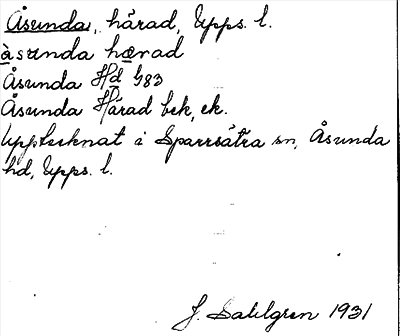 Åsunda, härad, Upps. l.
àsunda hærad
Åsunda Hd G83
Åsunda Härad bek, ek.
Upptecknat i Sparrsätra sn, Åsunda
hd, Upps. l.
J. Sahlgren 1931